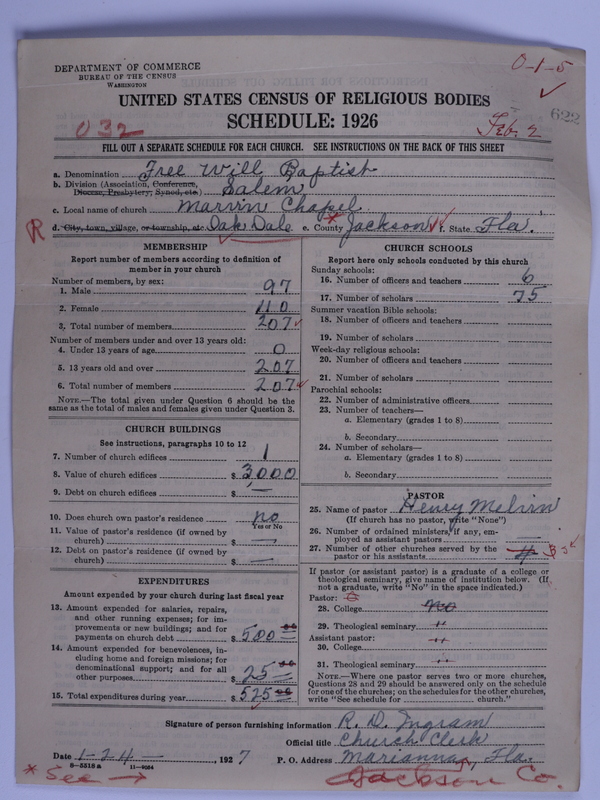 DEPARTMENT OF COMMERCE
BUREAU OF THE CENSUS
WASHINGTON
0-1-5
622
UNITED STATES CENSUS OF RELIGIOUS BODIES
SCHEDULE: 1926
032
Feb. 2
FILL OUT A SEPARATE SCHEDULE FOR EACH CHURCH. SEE INSTRUCTIONS ON THE BACK OF THIS SHEET
a. Denomination Free Will Baptist
b. Division (Association, Conference, Diocese, Presbytery, Synod, etc.) Salem
c. Local name of church Marvin Chapel
R d. City, town, village, or township, etc. Oak Dale e. County Jackson f. State Fla.
MEMBERSHIP
Report number of members according to definition of
member in your church
Number of members, by sex:
1. Male 97
2. Female 110
3. Total number of members 207
Number of members under and over 13 years old:
4. Under 13 years of age 0
5. 13 years old and over 207
6. Total number of members 207
NOTE.—The total given under Question 6 should be the
same as the total of males and females given under Question 3.
CHURCH BUILDINGS
See instructions, paragraphs 10 to 12
7. Number of church edifices 1
8. Value of church edifices $ 3,000
9. Debt on church edifices $ —
10. Does church own pastor's residence no
Yes or No
11. Value of pastor's residence (if owned by
church) $ —
12. Debt on pastor's residence (if owned by
church) $ —
EXPENDITURES
Amount expended by your church during last fiscal year
13. Amount expended for salaries, repairs,
and other running expenses; for im-
provements or new buildings; and for
payments on church debt $ 500 00
14. Amount expended for benevolences, in-
cluding home and foreign missions; for
denominational support; and for all
other purposes $ 25 00
15. Total expenditures during year $ 525 00
CHURCH SCHOOLS
Report here only schools conducted by this church
Sunday schools:
16. Number of officers and teachers 6
17. Number of scholars 75
Summer vacation Bible schools:
18. Number of officers and teachers
19. Number of scholars
Week-day religious schools:
20. Number of officers and teachers
21. Number of scholars
Parochial schools:
22. Number of administrative officers
23. Number of teachers—
a. Elementary (grades 1 to 8)
b. Secondary
24. Number of scholars—
a. Elementary (grades 1 to 8)
b. Secondary
PASTOR
25. Name of pastor Henry Melvin
(If church has no pastor, write "None")
26. Number of ordained ministers, if any, em-
ployed as assistant pastors —
27. Number of other churches served by the
pastor or his assistants 4
If pastor (or assistant pastor) is a graduate of a college or
theological seminary, give name of institution below. (If
not a graduate, write "No" in the space indicated.)
Pastor:
28. College no
29. Theological seminary "
Assistant pastor:
30. College "
31. Theological seminary "
NOTE.—Where one pastor serves two or more churches,
Questions 28 and 29 should be answered only on the schedule
for one of the churches; on the schedules for the other churches,
write "See schedule for church."
Signature of person furnishing information R. D. Ingram
Official title Church Clerk
Date 1-24- 1927 P. O. Address Marianna, Fla.
8-5518 a 11-9054
* See → Jackson Co.